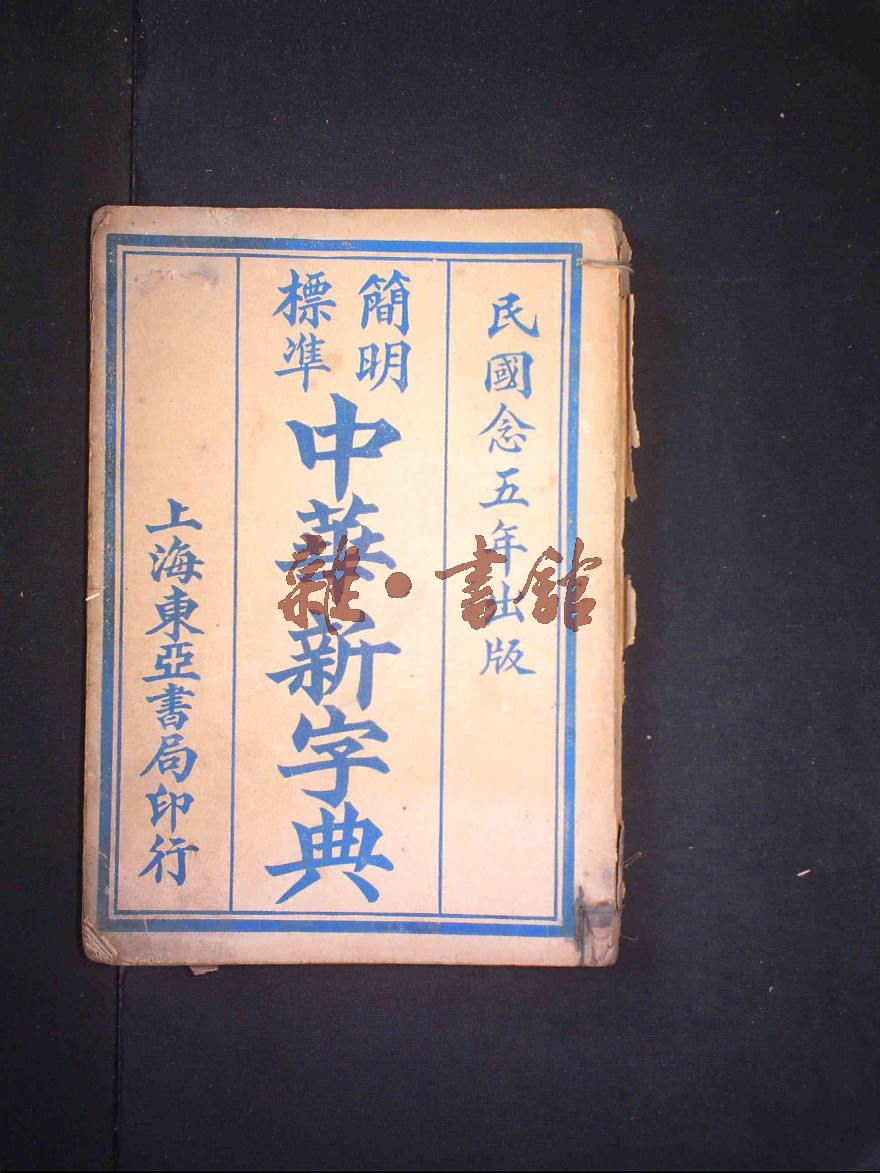 民國念五年出版
簡明
標準
中華新字典
上海東亞書局印行
雜·書館